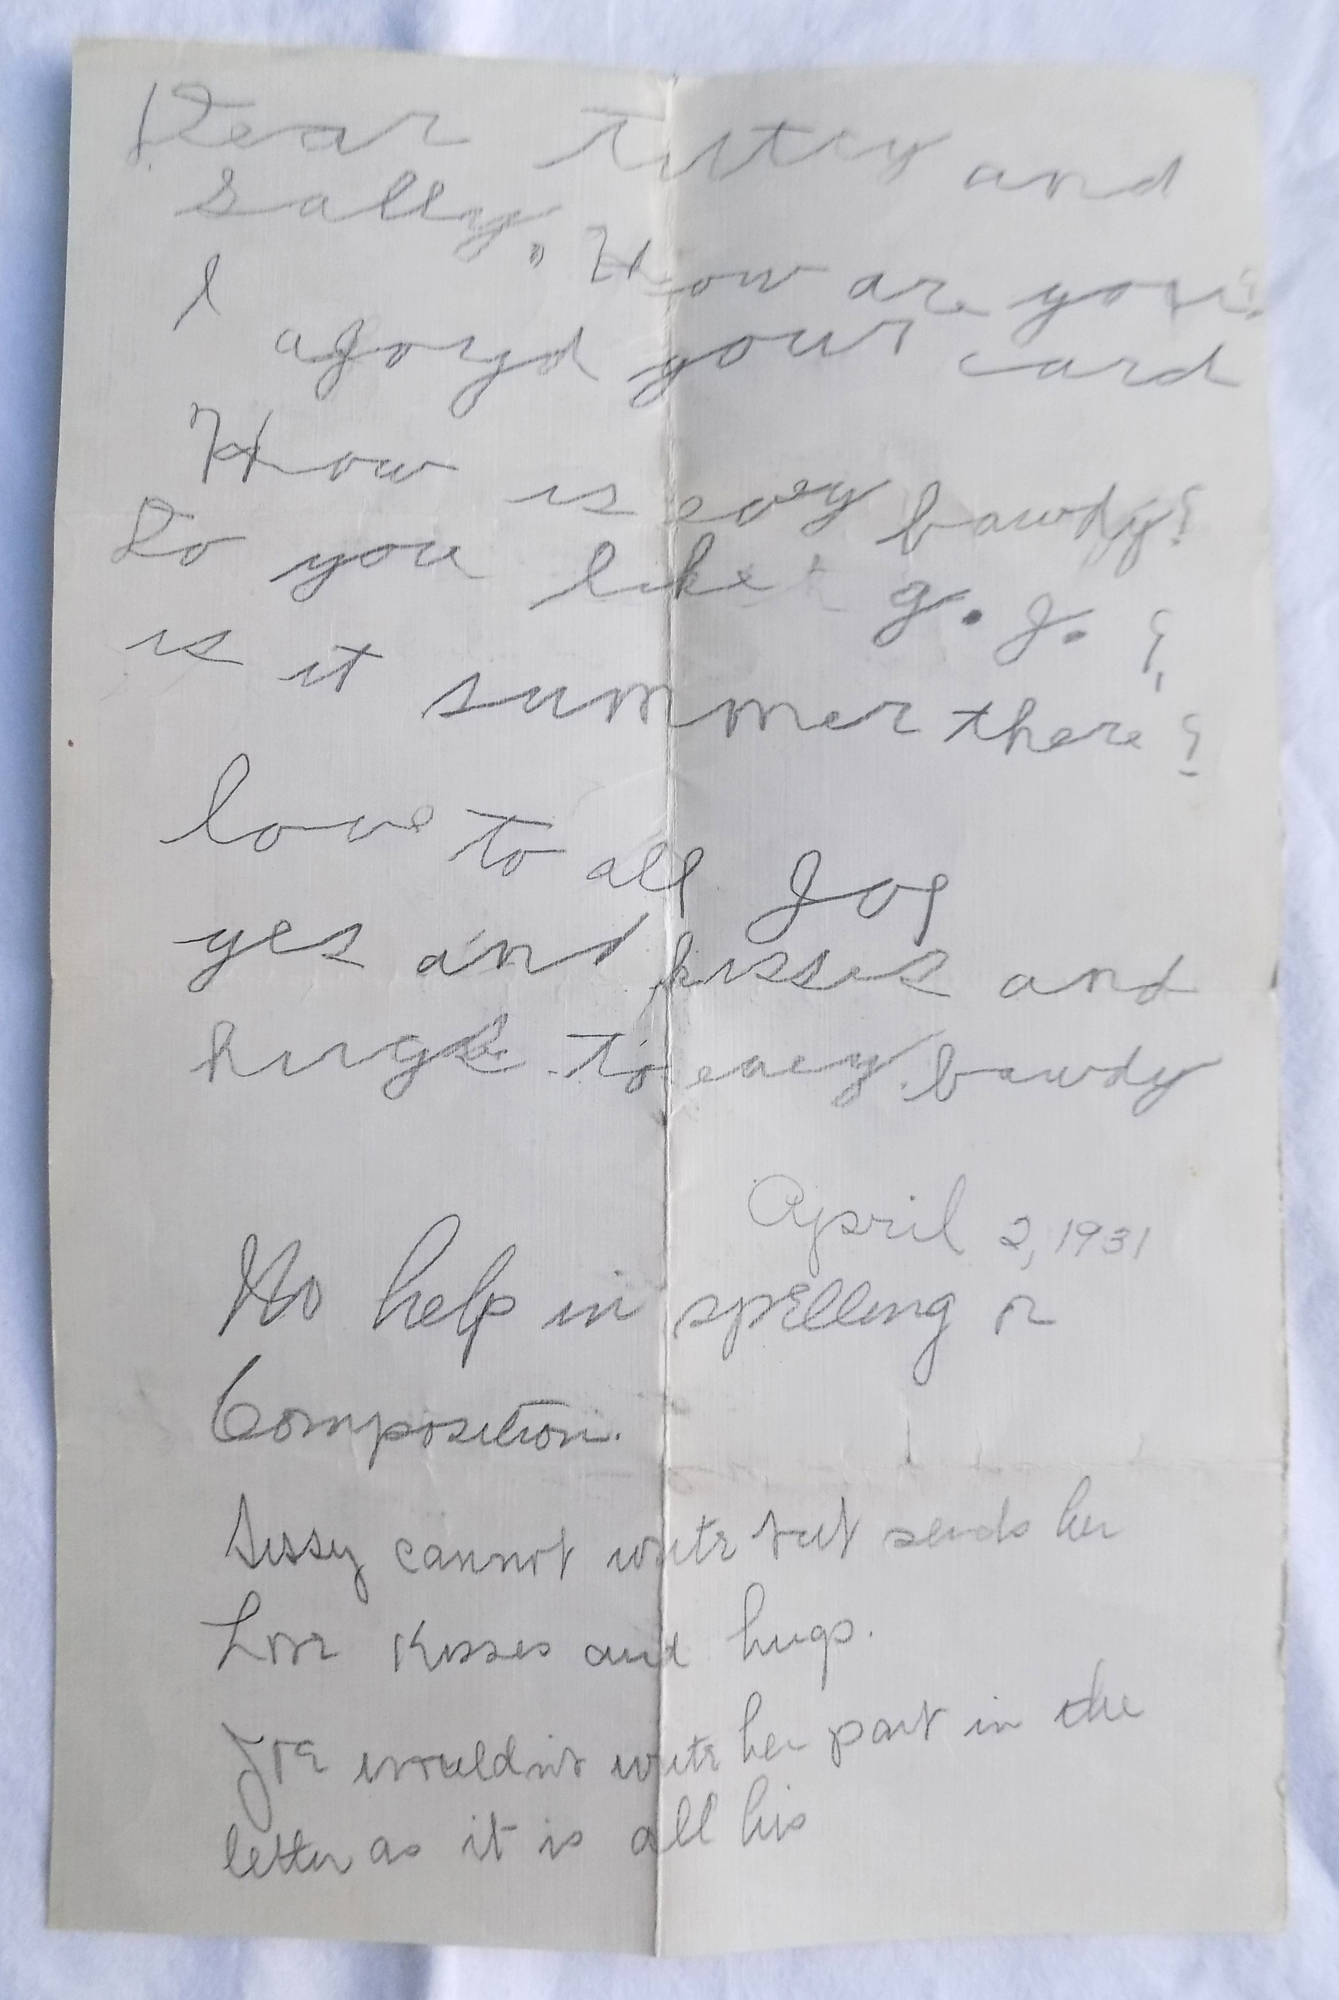 Dear Tutcy and
Sally, How are you?
I agoyd your card
How is evey bawdy?
Do you like g. g. ?
is it summer there?
love to all Joe
yes and kisses and
hugs to eaey bawdy
April 2, 1931
No help in spelling or
Composition.
Sissy cannot write but sends her
Love Kisses and hugs.
Joe wouldn't write her part in the
letter as it is all his